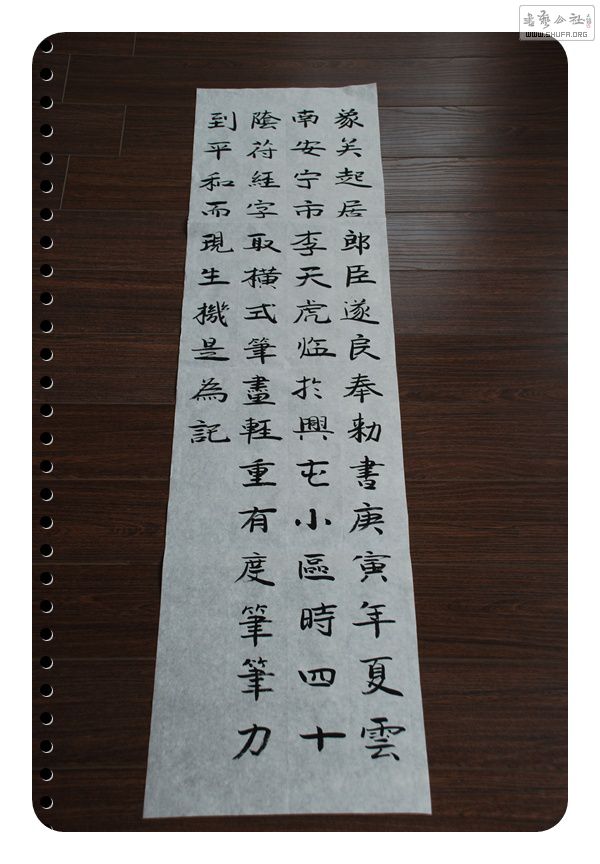 书艺公社
WWW.SHUFA.ORG
关起居郎臣遂良奉勅書庚寅年夏雲
南安宁市李天虎临於興屯小區時四十
陰符經字取橫式筆畫輕重有度筆筆力
到平和而現生機是為記